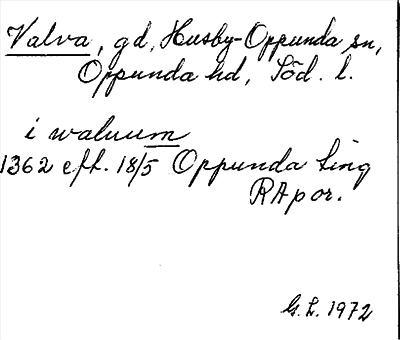 Valva, gd, Husby-Oppunda sn,
Oppunda hd, Söd. l.
i waluum
1362 eft. 18/5 Oppunda ting
RAp or.
G.L. 1972